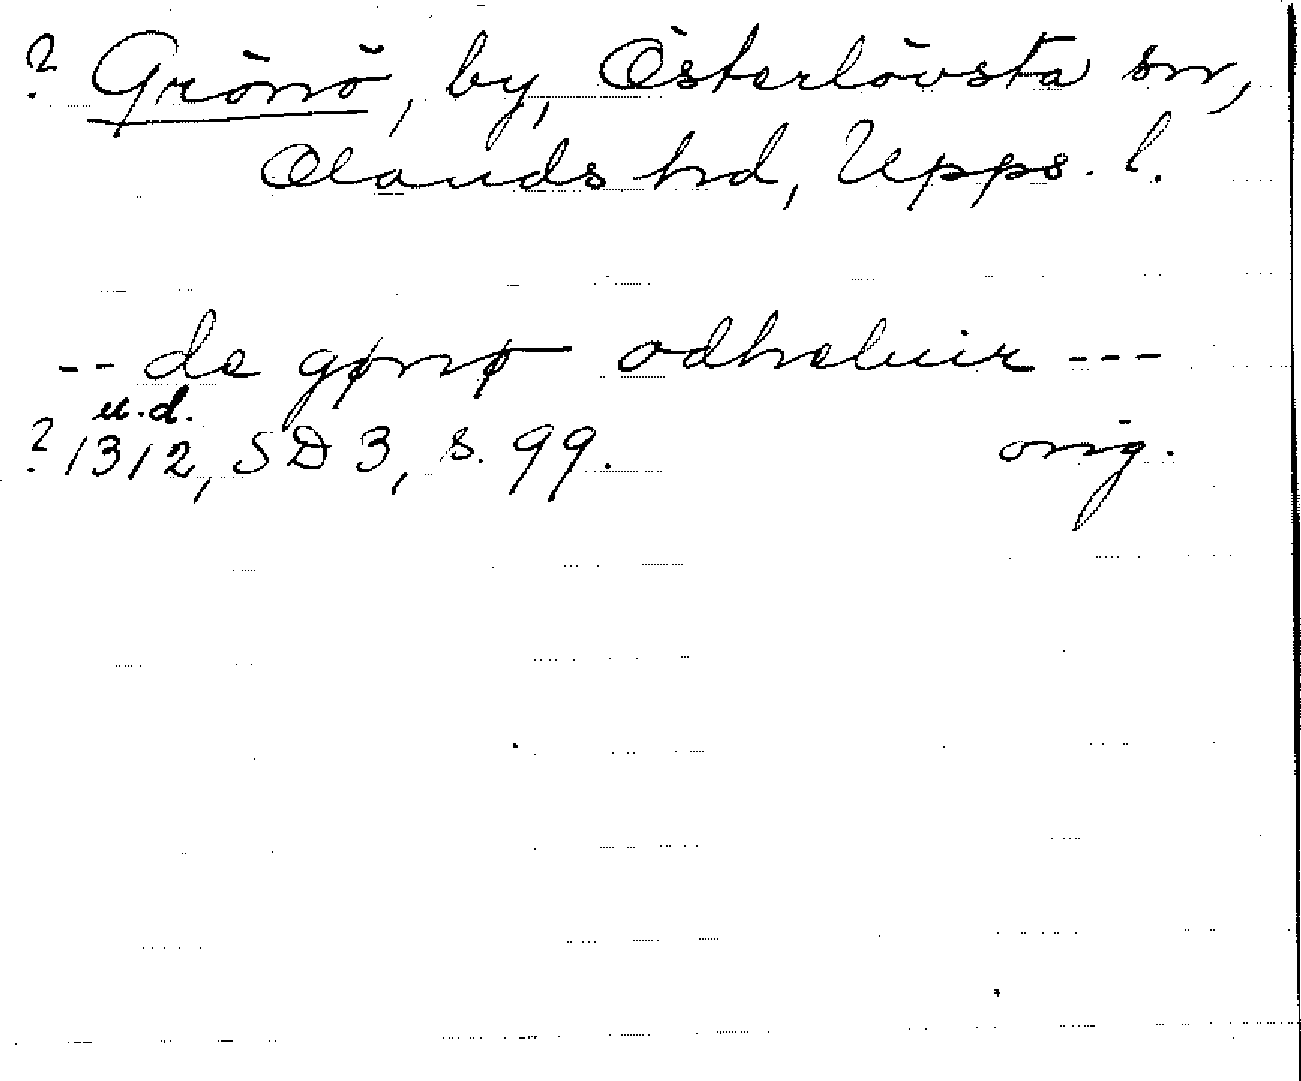 ? Grönö, by, Österlövsta sn,
Olands hd, Upps. l.
-- de gønø odheluir ---
u.d.
? 1312, SD 3, s. 99. orig.